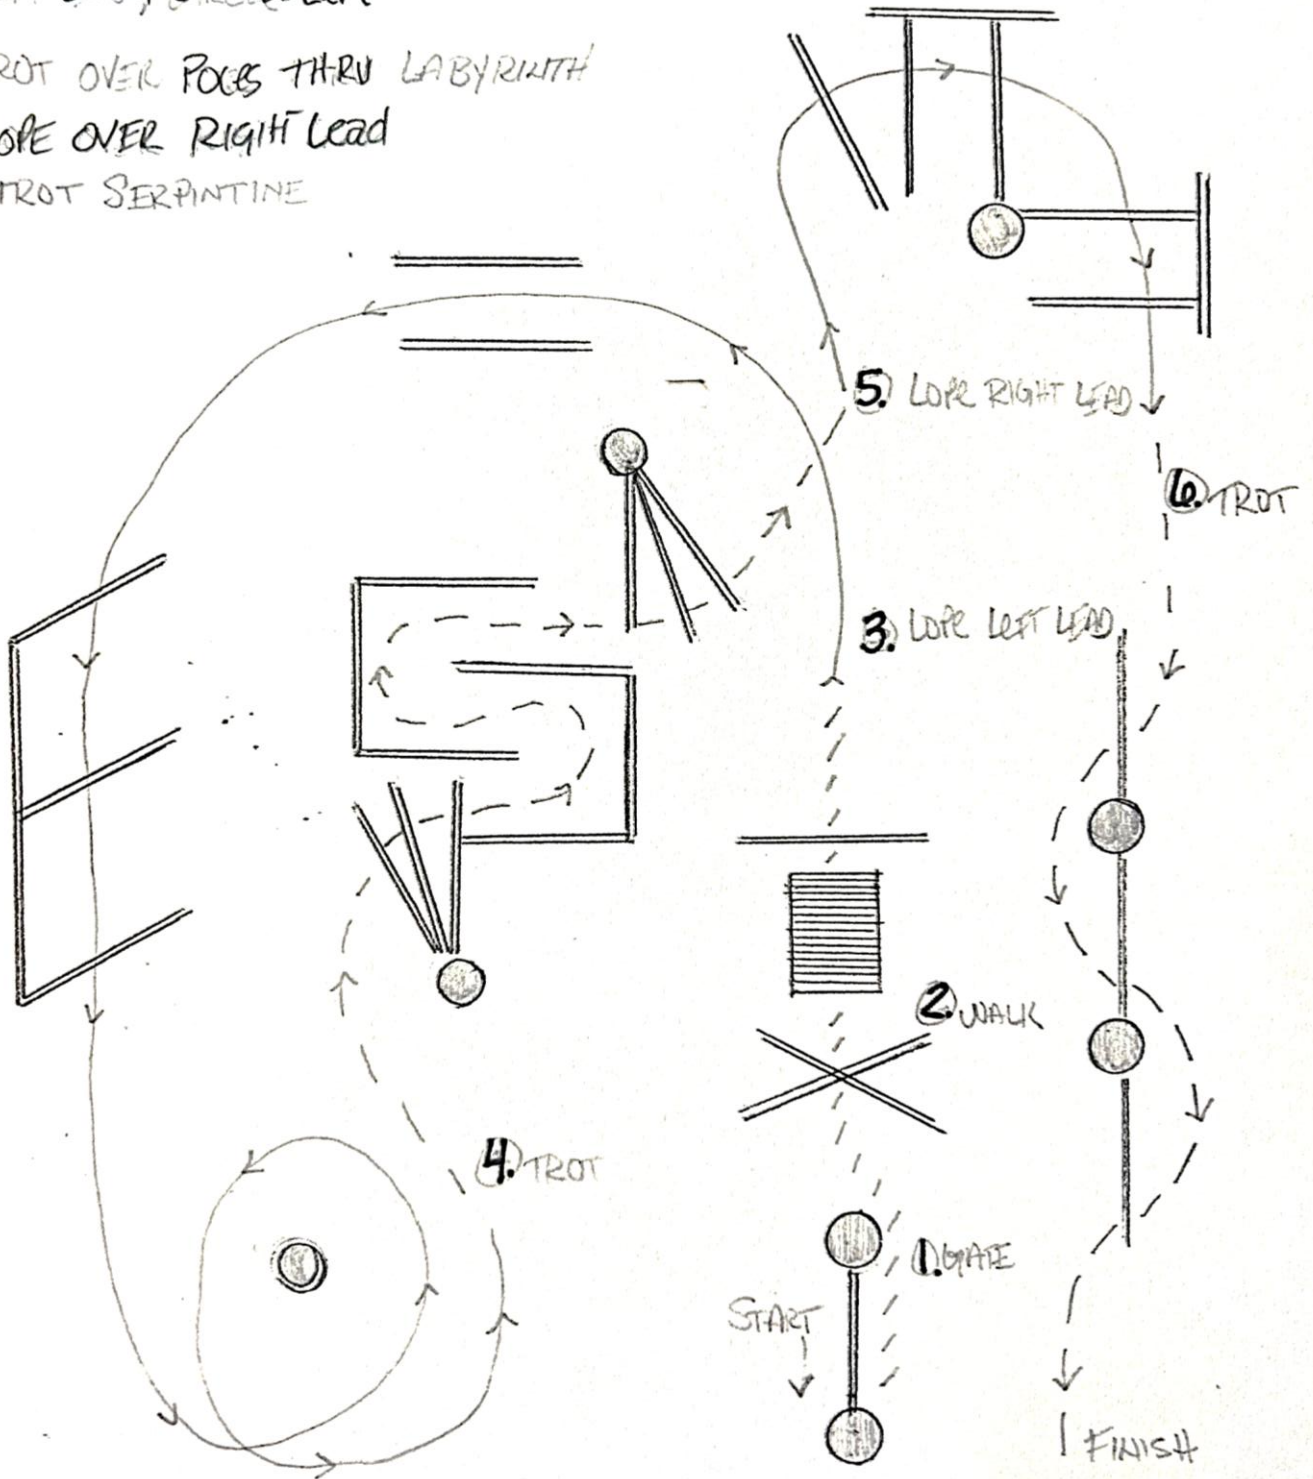 OVER POLES THRU LABYRINTH
OVER RIGHT Lead
TROT SERPINTINE
5. LOPE RIGHT LEAD
6. TROT
3. LOPE LEFT LEAD
2. WALK
4. TROT
1. GATE
START
FINISH